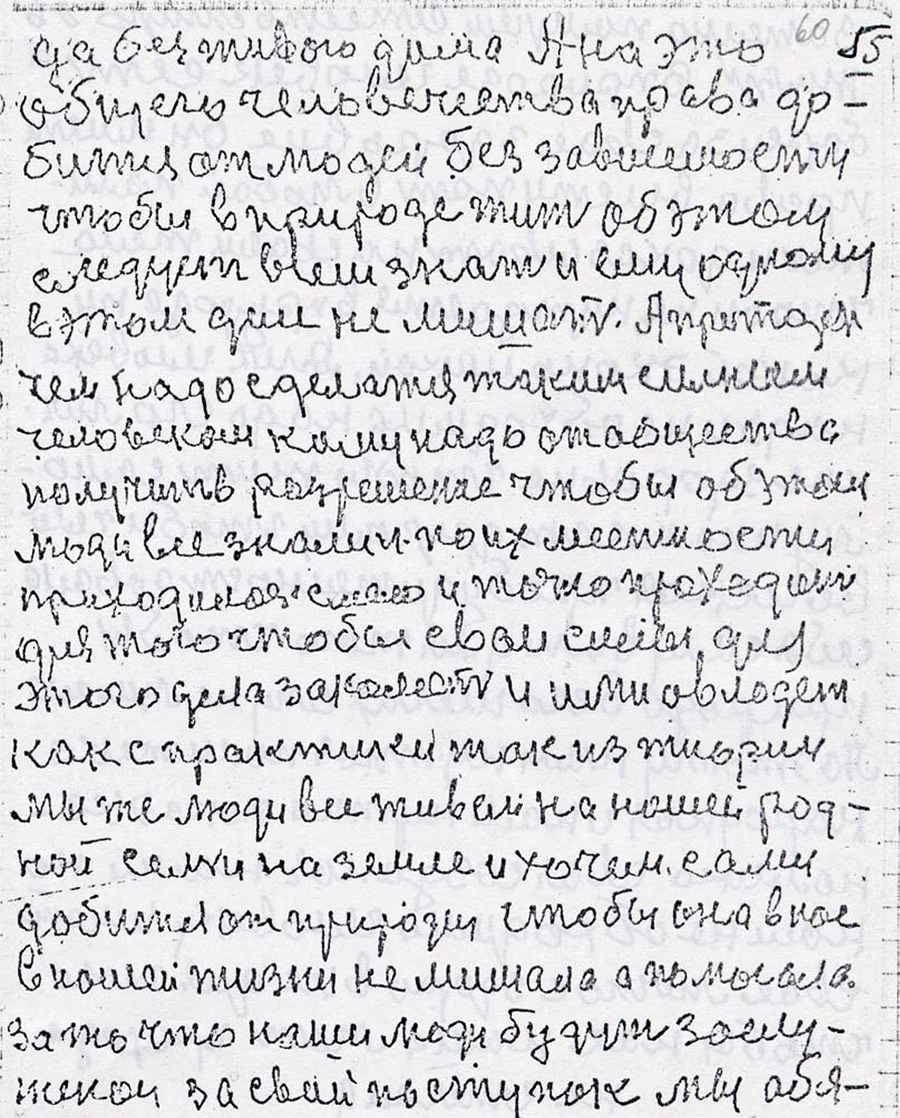 60 55
да без живого дома А на это
общего человечества права до-
битця от людей без зависемости
чтобы в природе жит об этом
следует всем знат и ему одному
в этом деле не мишат. А прежде
чем надо сделатця таким силним
человеком кому надо от общества
получить разрешение чтобы об этом
люди все знали и по их местности
приходилос смело и точно проходит
для того чтобы свои силы для
этого дела закалит и ими овладет
как с практики так из тиории
мы же люди все живем на нашей род-
ной семли на земле и хочем сами
добитця от природы чтобы она в нас
в нашей жизни не мишала а помогала.
За то что наши люди будут заслу-
жено за свой поступок мы обя-